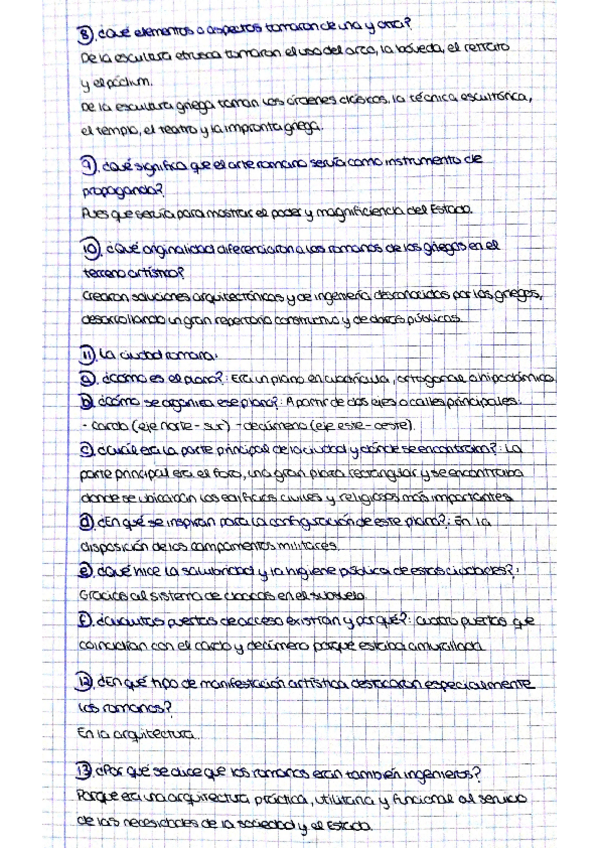 8). ¿Qué elementos o aspectos tomaron de una y otra?
De la escultura etrusca tomaron el uso del arco, la bóveda, el retrato
y el pódium.
De la escultura griega toman los órdenes clásicos, la técnica escultórica,
el templo, el teatro y la impronta griega.
9). ¿Qué significa que el arte romano servía como instrumento de
propaganda?
Pues que servía para mostrar el poder y magnificiencia del Estado.
10). ¿Qué originalidad diferenciaron a los romanos de los griegos en el
terreno artístico?
Crearon soluciones arquitectónicas y de ingeniería desconocidas por los griegos,
desarrollando un gran repertorio constructivo y de obras públicas.
11). La ciudad romana.
a). ¿Cómo es el plano?: Era un plano en cuadrícula, ortogonal o hipodámico.
b). ¿Cómo se organiza ese plano?: A partir de dos ejes o calles principales:
- cardo (eje norte - sur) - decúmeno (eje este - oeste).
c). ¿Cuál era la parte principal de la ciudad y dónde se encontraba?: La
parte principal era el foro, una gran plaza rectangular y se encontraba
donde se ubicaban los edificios civiles y religiosos más importantes.
d). ¿En qué se inspiran para la configuración de este plano?: En la
disposición de los campamentos militares.
e). ¿Qué hice la salubridad y la higiene pública de estas ciudades?:
Gracias al sistema de cloacas en el subsuelo.
f). ¿Cuántas puertas de acceso existían y por qué?: cuatro puertas que
coincidían con el cardo y decúmero porque estaba amurallada.
12). ¿En qué tipo de manifestación artística destacaron especialmente
los romanos?
En la arquitectura.
13). ¿Por qué se dice que los romanos eran también ingenieros?
Porque era una arquitectura práctica, utilitaria y funcional al servicio
de las necesidades de la sociedad y el Estado.